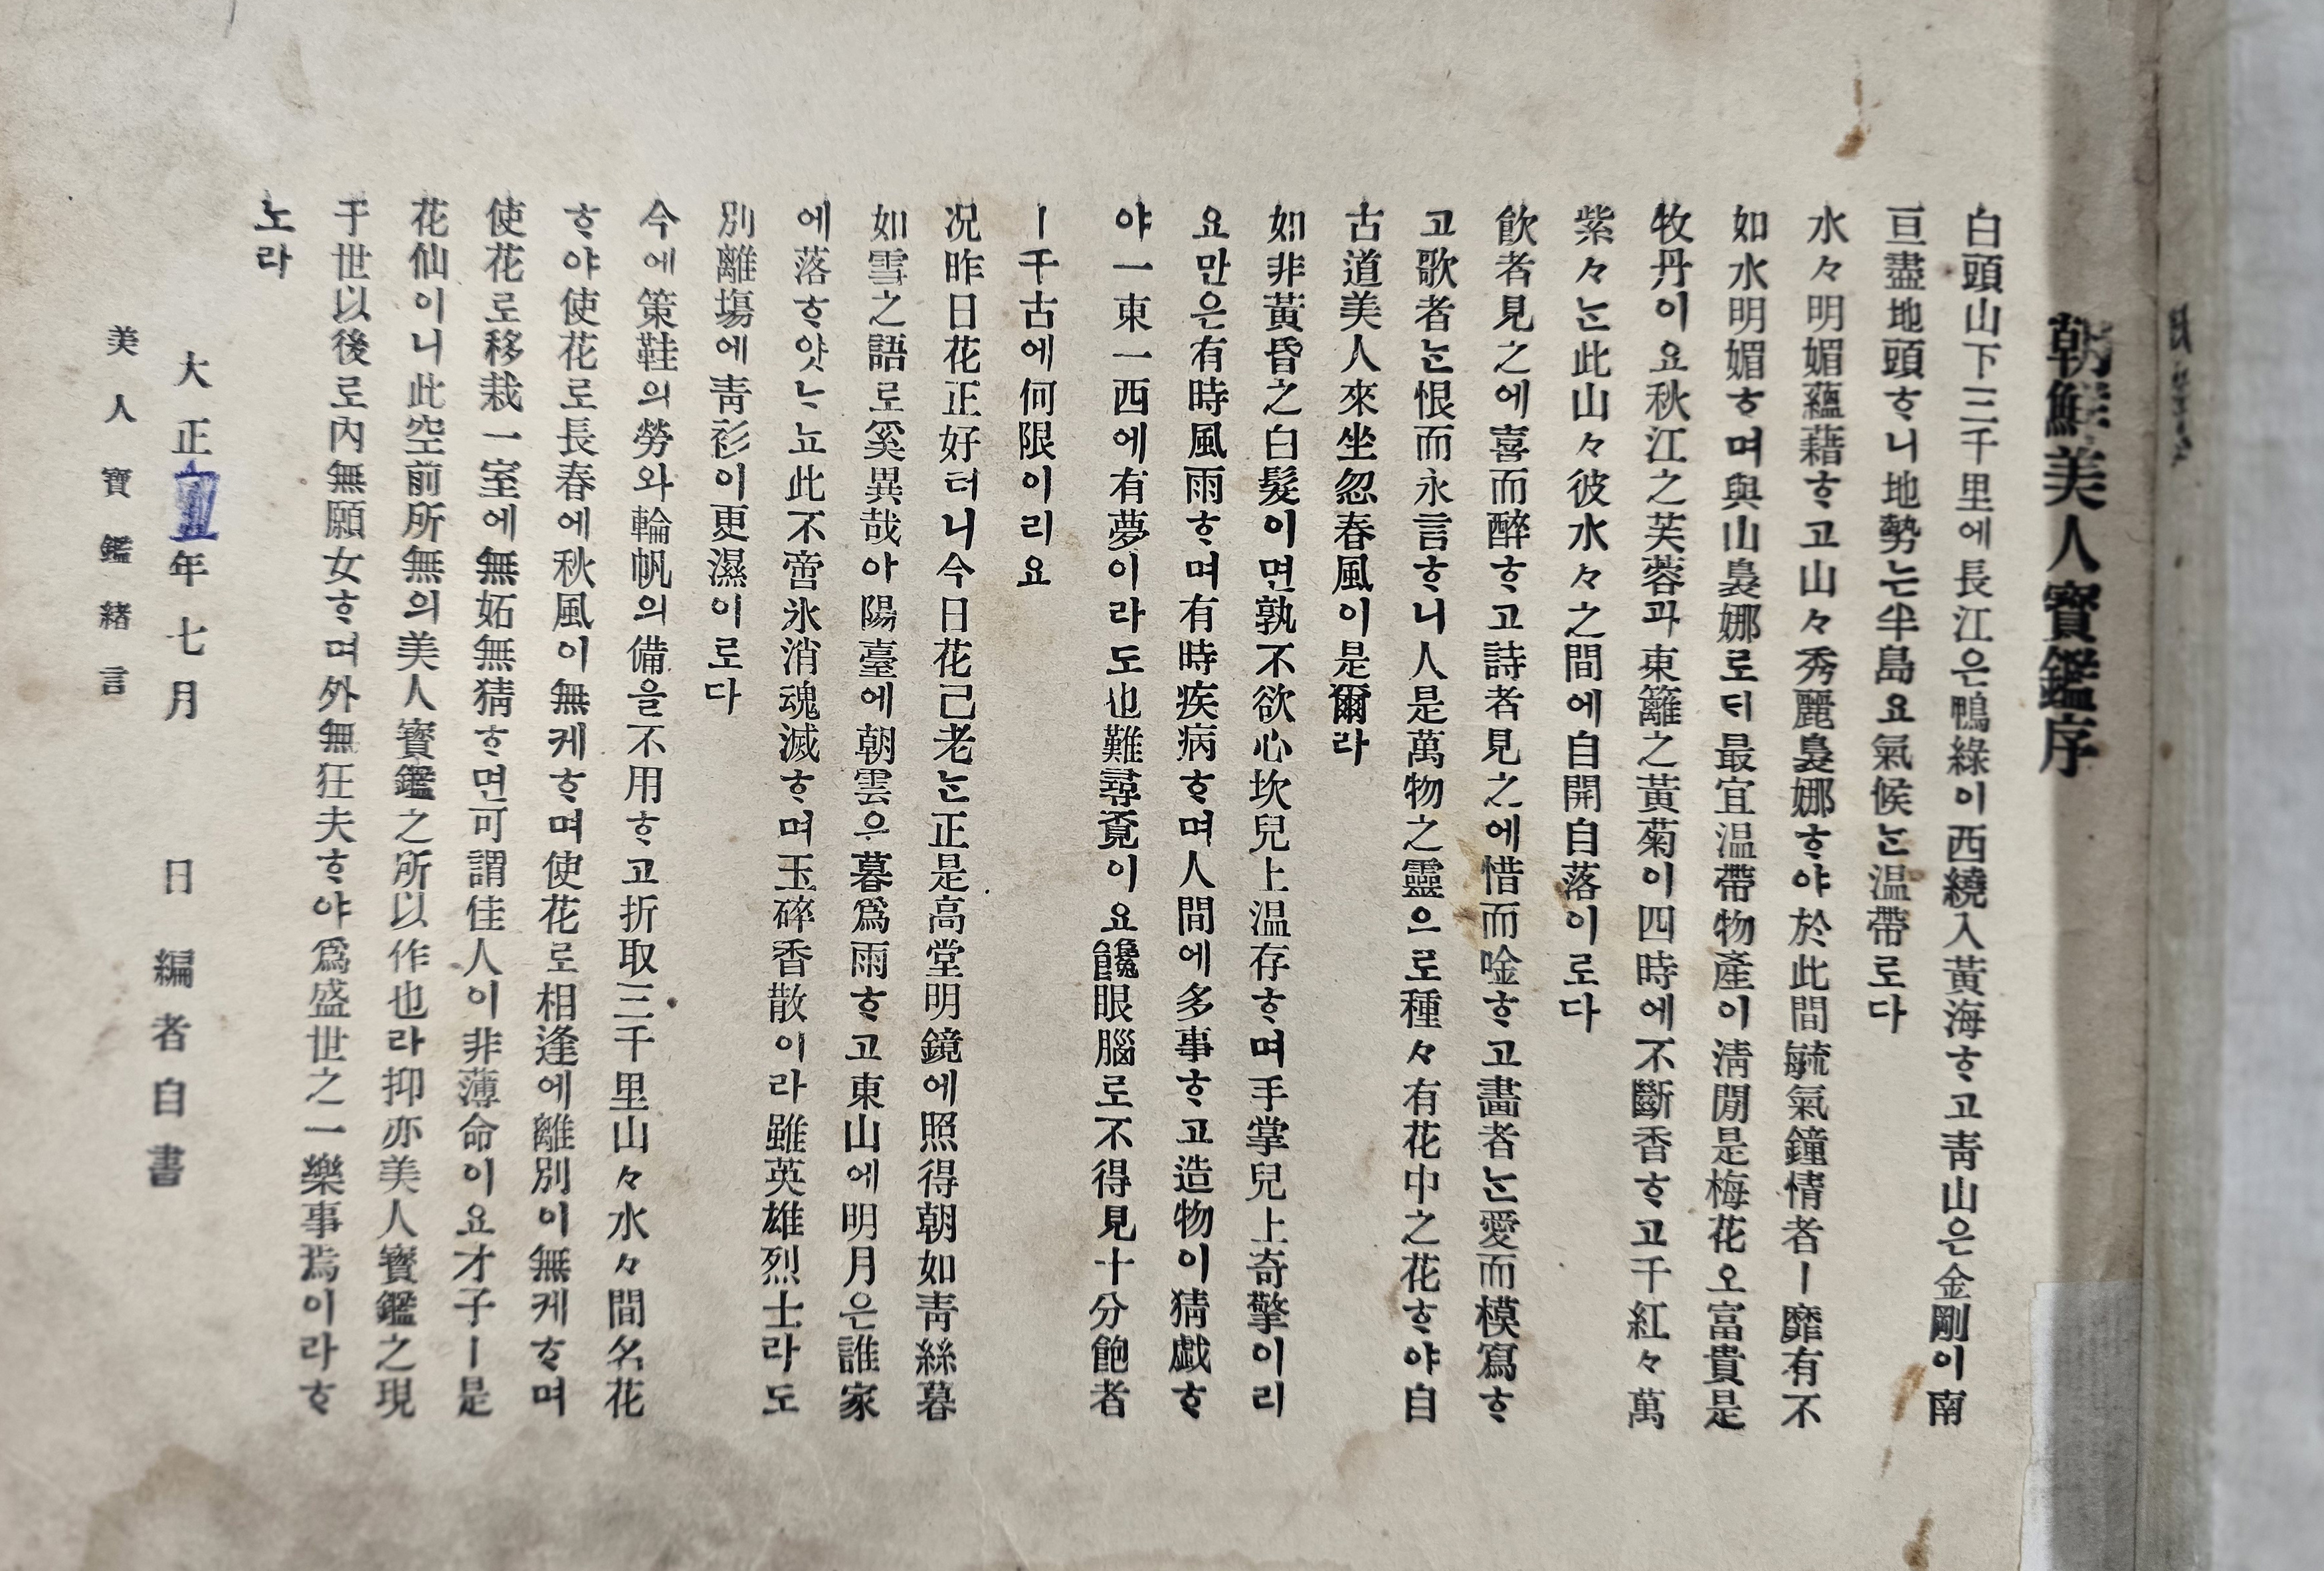 朝鮮美人寶鑑序
白頭山下三千里에長江은鴨綠이西繞入黃海ᄒᆞ고靑山은金剛이南
亘盡地頭ᄒᆞ니地勢는半島요氣候ᄂᆞᆫ温帶로다
水々明媚蘊藉ᄒᆞ고山々秀麗裊娜ᄒᆞ야於此間毓氣鐘情者ㅣ靡有不
如水明媚ᄒᆞ며與山裊娜로ᄃᆡ最宜温帶物產이淸閒是梅花오富貴是
牧丹이요秋江之芙蓉과東籬之黃菊이四時에不斷香ᄒᆞ고千紅々萬
紫々ᄂᆞᆫ此山々彼水々之間에自開自落이로다
飮者見之에喜而醉ᄒᆞ고詩者見之에惜而唫ᄒᆞ고畵者ᄂᆞᆫ愛而模寫ᄒᆞ
고歌者ᄂᆞᆫ恨而永言ᄒᆞ니人是萬物之靈으로種々有花中之花ᄒᆞ야自
古道美人來坐忽春風이是爾라
如非黃昏之白髮이면孰不欲心坎兒上温存ᄒᆞ며手掌兒上奇擎이리
요만은有時風雨ᄒᆞ며有時疾病ᄒᆞ며人間에多事ᄒᆞ고造物이猜戱ᄒᆞ
야一東一西에有夢이라도也難尋覔이요饞眼腦로不得見十分飽者
ㅣ千古에何限이리요
况昨日花正好터니今日花已老ᄂᆞᆫ正是高堂明鏡에照得朝如靑絲暮
如雪之語로奚異哉아陽臺에朝雲으暮爲雨ᄒᆞ고東山에明月은誰家
에落ᄒᆞ얏ᄂᆞ뇨此不啻氷消魂滅ᄒᆞ며玉碎香散이라雖英雄烈士라도
別離塲에靑衫이更濕이로다
今에策鞋의勞와輪帆의備을不用ᄒᆞ고折取三千里山々水々間名花
ᄒᆞ야使花로長春에秋風이無케ᄒᆞ며使花로相逢에離別이無케ᄒᆞ며
使花로移栽一室에無妬無猜ᄒᆞ면可謂佳人이非薄命이요才子ㅣ是
花仙이니此空前所無의美人寶鑑之所以作也라抑亦美人寶鑑之現
于世以後로內無願女ᄒᆞ며外無狂夫ᄒᆞ야爲盛世之一樂事焉이라ᄒᆞ
노라
大正 年七月 日 編者自書
美人寶鑑緖言